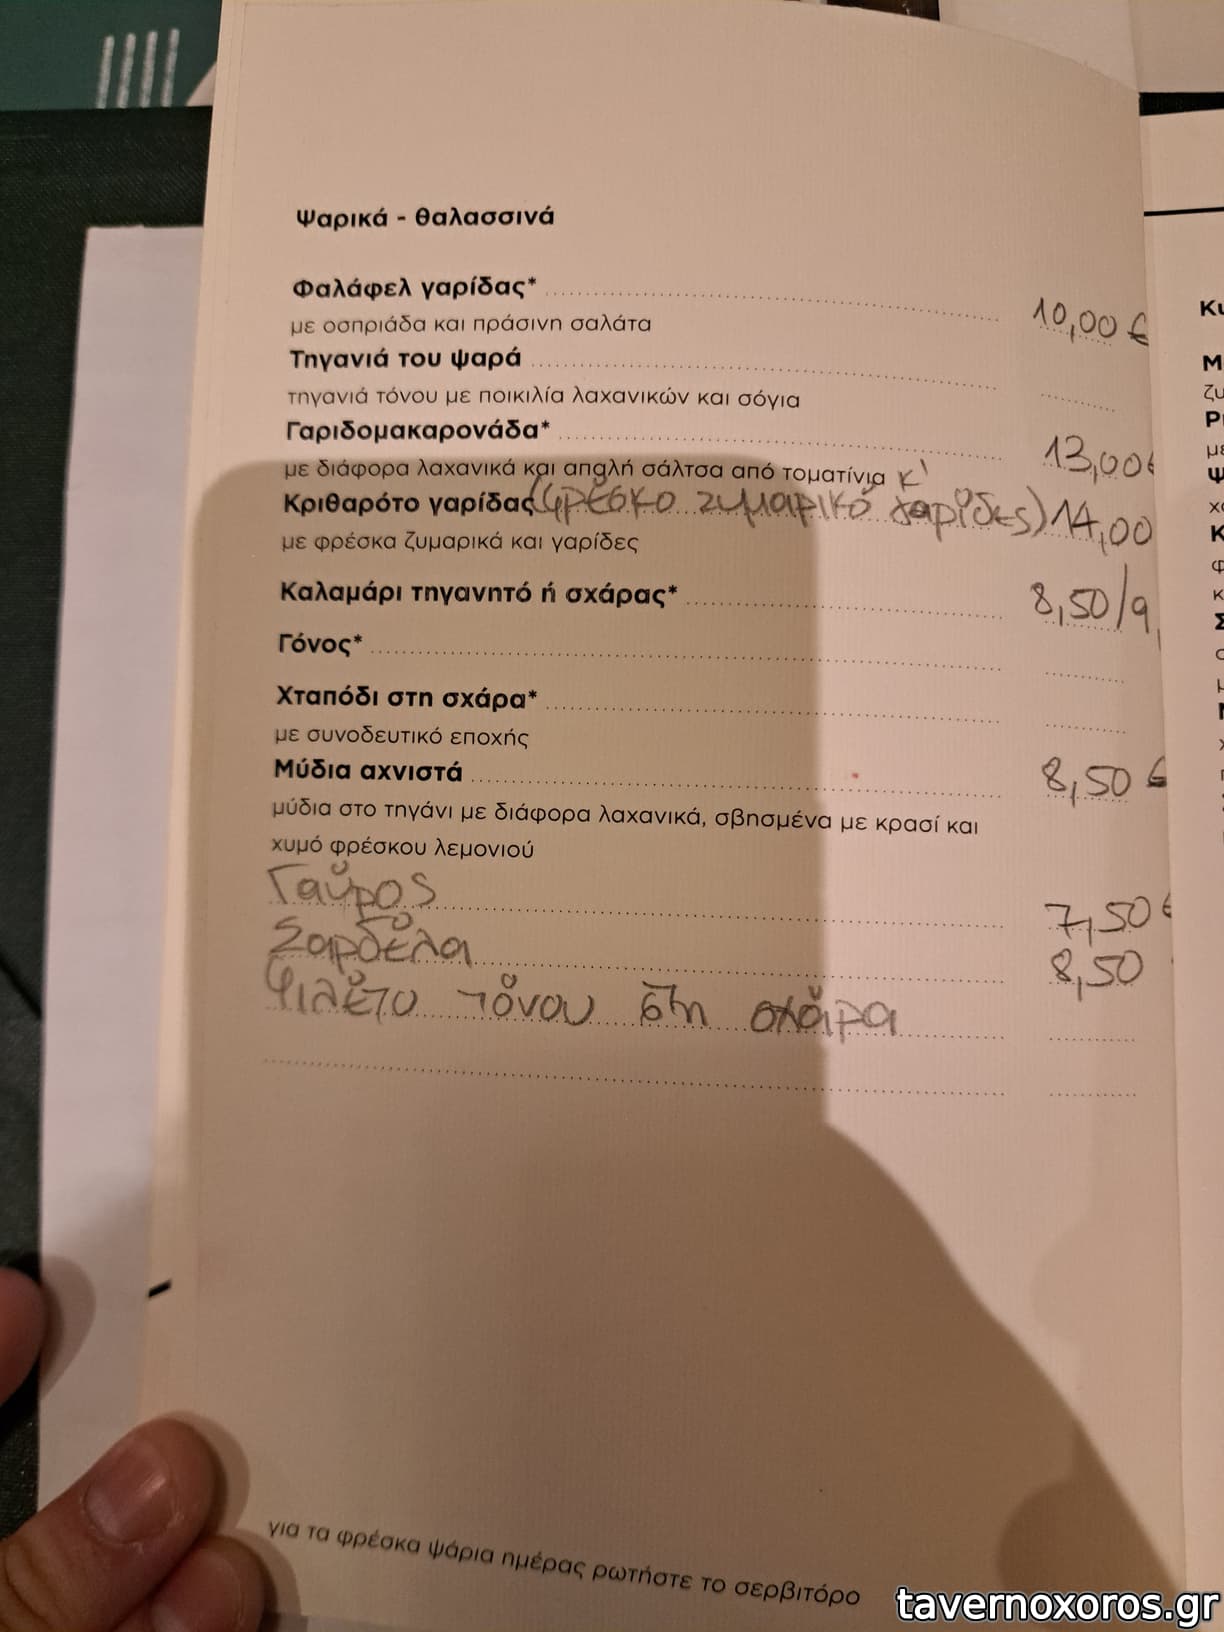 Ψαρικά - θαλασσινά
Φαλάφελ γαρίδας* 10,00 €
με οσπριάδα και πράσινη σαλάτα
Τηγανιά του ψαρά
τηγανιά τόνου με ποικιλία λαχανικών και σόγια
Γαριδομακαρονάδα* 13,00€
με διάφορα λαχανικά και απαλή σάλτσα από τοματίνια κ'
Κριθαρότο γαρίδας (φρέσκο ζυμαρικό γαρίδες) 14,00
με φρέσκα ζυμαρικά και γαρίδες
Καλαμάρι τηγανητό ή σχάρας* 8,50/9,
Γόνος*
Χταπόδι στη σχάρα*
με συνοδευτικό εποχής
Μύδια αχνιστά 8,50 €
μύδια στο τηγάνι με διάφορα λαχανικά, σβησμένα με κρασί και
χυμό φρέσκου λεμονιού
Γαύρος 7,50 €
Σαρδέλα 8,50
Φιλέτο τόνου στη σχάρα
για τα φρέσκα ψάρια ημέρας ρωτήστε το σερβιτόρο
tavernoxoros.gr